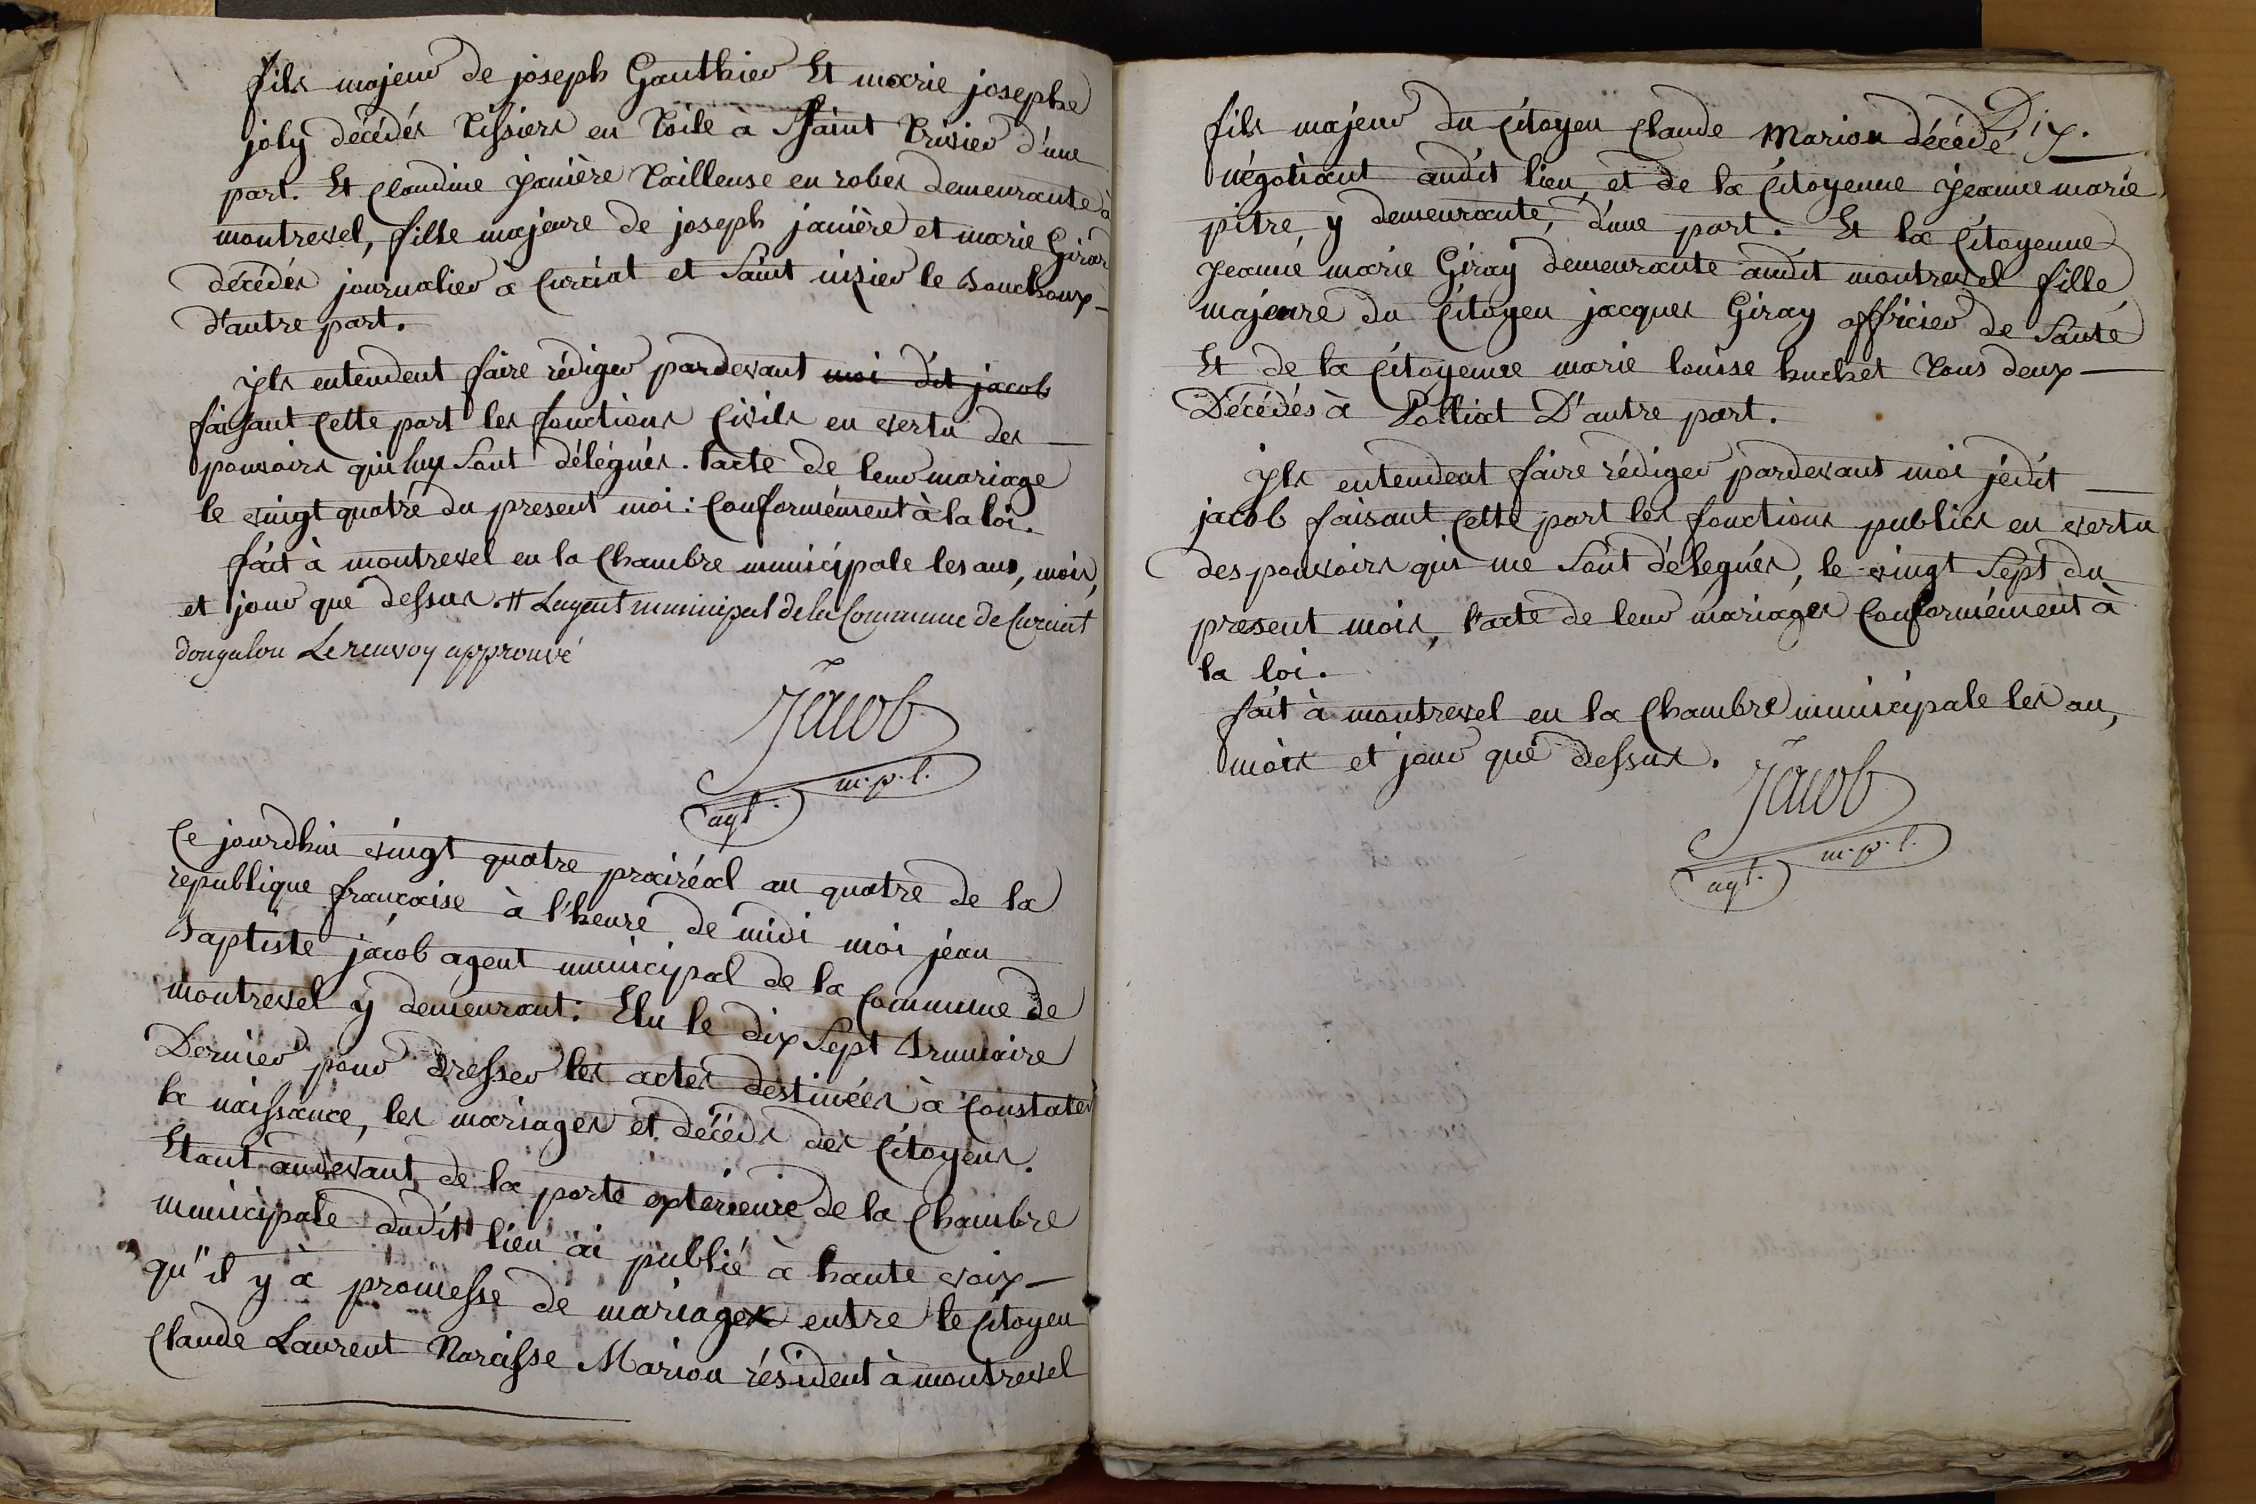 fils majeur de joseph Gauthier Et marie josephe
joly décédés tissiers en toile à Saint trivier d'une
part. Et Claudine janière tailleuse en robes demeurante à
montrevel, fille majeure de joseph janière et marie Girar
décédés journalier à Curciat et Saint nizier le bouchoux
d'autre part.
yls entendent faire rédiger pardevant moi dit jacob
faisant Cette part les fonctions Civils en vertu des
pouvoirs qui luy sont délégués. l'acte de leur mariage
le vingt quatre du present moi : Conformément à la loi.
fait à montrevel en la Chambre municipale les ans, mois,
et jour que dessus. # Lagent municipal de la Commune de Curciat
dongalon Le renvoy approuvé
Jacob
agt. m.p.l.
Ce jourdhui vingt quatre prairéal an quatre de la
republique francaise à l'heure de midi moi jéan
baptiste jacob agent municipal de la Commune de
montrevel y demeurant : Elu le dix sept brumaire
Dernier pour dresser les actes destinées à Constater
la naissance, les mariages et décéds des Citoyens.
Etant audevant de la porte exterieure de la Chambre
municipale dudit lieu ai publié à haute voix
qu'il y à promesse de mariage entre le Citoyen
Claude Laurent Narcisse Marion résident à montrevel
Dix.
fils majeur du Citoyen Claude Marion décédé
négotiant audit lieu, et de la Citoyenne jeanne marie
pitre y demeurante, d'une part. Et la Citoyenne
jeanne marie Giray demeurante audit montrevel fille
majeure du Citoyen jacques Giray officier de Santé
Et de la Citoyenne marie louise huchet tous deux
Décédés à Polliat D'autre part.
yls entendent faire rédiger pardevant moi jédit
jacob faisant Cette part les fonctions publics en vertu
des pouvoirs qui me sont délegués, le vingt sept du
present mois, l'acte de leur mariages Conformément à
la loi.
fait à montrevel en la Chambre municipale les an,
mois et jour que dessus.
Jacob
agt. m.p.l.